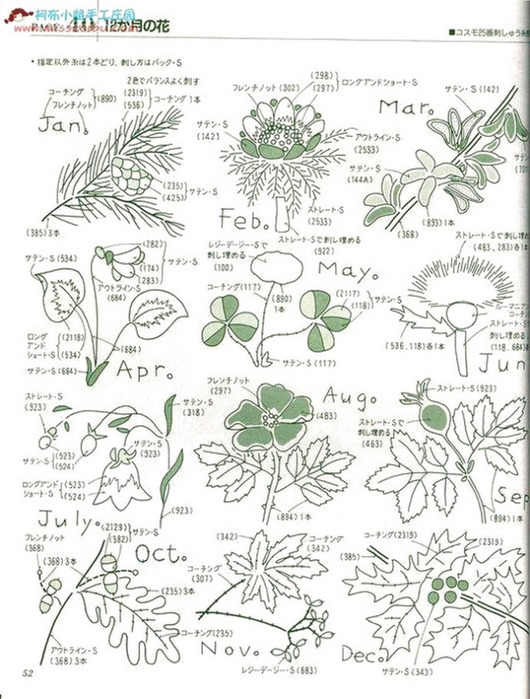 柯布小熊手工庄园
12か月の花
■コスモ25番刺しゅう糸
・指定以外糸は2本どり、刺し方はバック・S
2色でバランスよく刺す
コーチング
フレンチノット
(890)
(2319)
(536)
コーチング1本
Jan.
(235)
(425)
サテン・S
(385)3本
フレンチノット(302)
(298)
(297)
ロングアンドショート・S
サテン・S
(142)
アウトライン・S
(2533)
Feb.
ストレート・S
(2533)
ストレート・Sで刺し埋める
(922)
Mar.
サテン・S(142)
サテン・S
(144A)
サテン・S
(893)1本
(368)
サテン・S(534)
(282)
(174)
(283)
サテン・S
アウトライン・S
(684)
ロング
アンド
ショート・S
(2118)
(534)
(684)
サテン・S(684)
Apr.
レジーデージー・Sで
刺し埋める
(100)
May.
コーチング(117)
(890)
1本
(2117)
(118)
サテン・S
サテン・S(117)
ストレート・Sで刺し埋め
(483, 283)各1本
ルーマニア
コーチ
ストレート・S
刺し埋める
(118, 684)
(536, 118)各1本
Jun
ストレート・S
(923)
サテン・S
(318)
サテン・S
(523)
サテン・S
(523)
(524)
ロングアンド
ショート・S
(523)
(524)
(923)
July.
フレンチノット
(297)
(483)
Aug.
(894)1本
ストレート・S(923)
ストレート・Sで
刺し埋める
(463)
Sep
(894)1本
フレンチノット
(368)
(2129)
(382)
サテン・S
Oct.
(368)3本
(235)3本
アウトライン・S
(368)3本
(342)
コーチング
(342)
コーチング
(307)
コーチング(235)
Nov.
レジーデージー・S(683)
コーチング(2319)
(2319)
(385)
Dec.
サテン・S(343)
52